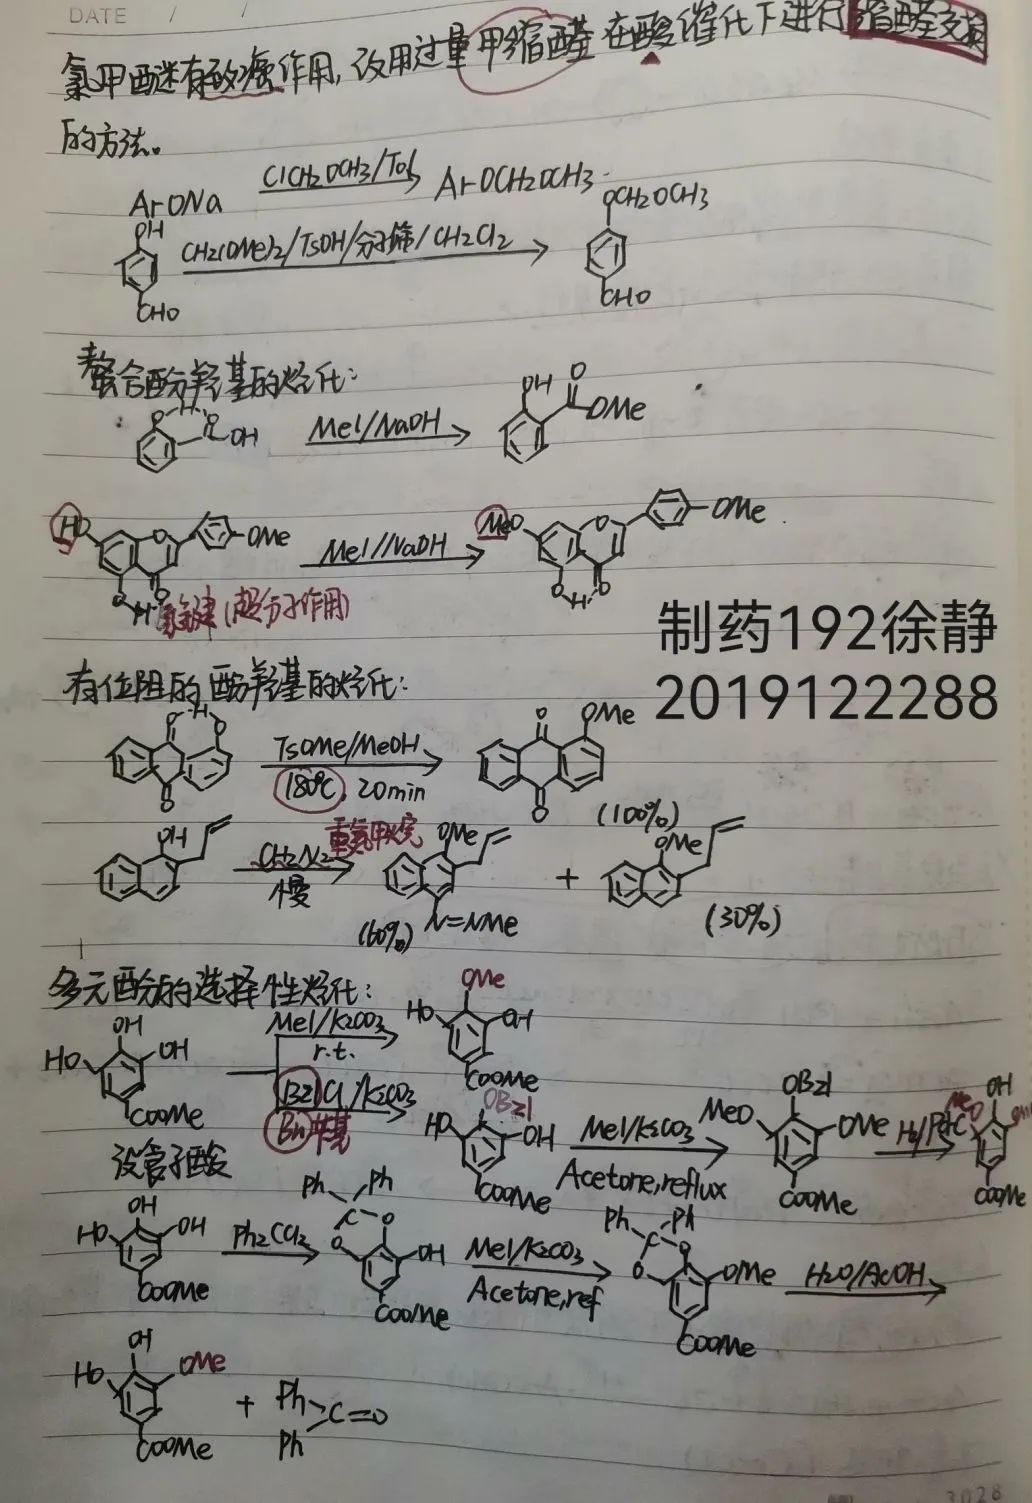 DATE / /
氯甲醚有致癌作用,改用过量甲缩醛在酸催化下进行缩醛交换
的方法。
ArONa ClCH2OCH3/Tol ArOCH2OCH3
OH CH2(OMe)2/TsOH/分子筛/CH2Cl2 OCH2OCH3
CHO CHO
螯合酚羟基的烃化:
O H O OH MeI/NaOH OH O OMe
HO O OMe MeI/NaOH MeO O OMe
O H O 氢键(超分子作用) O H O
制药192徐静
2019122288
有位阻的酚羟基的烃化:
O H O O TsOMe/MeOH O OMe O
180℃, 20min (100%)
OH CH2N2 重氮甲烷 OMe + OMe
慢 (60%) N=NMe (30%)
多元酚的选择性烃化:
OH HO OH COOMe MeI/K2CO3 HO OMe OH COOMe
r.t.
BzlCl/K2CO3 HO OBzl OH COOMe MeI/K2CO3 MeO OBzl OMe COOMe H2/Pd-C MeO OH OMe COOMe
Bn苄基 Acetone,reflux
没食子酸
HO OH OH COOMe Ph2CCl2 Ph Ph C O O OH COOMe MeI/K2CO3 Ph Ph C O O OMe COOMe H2O/AcOH
Acetone,ref
HO OH OMe COOMe + Ph Ph C=O